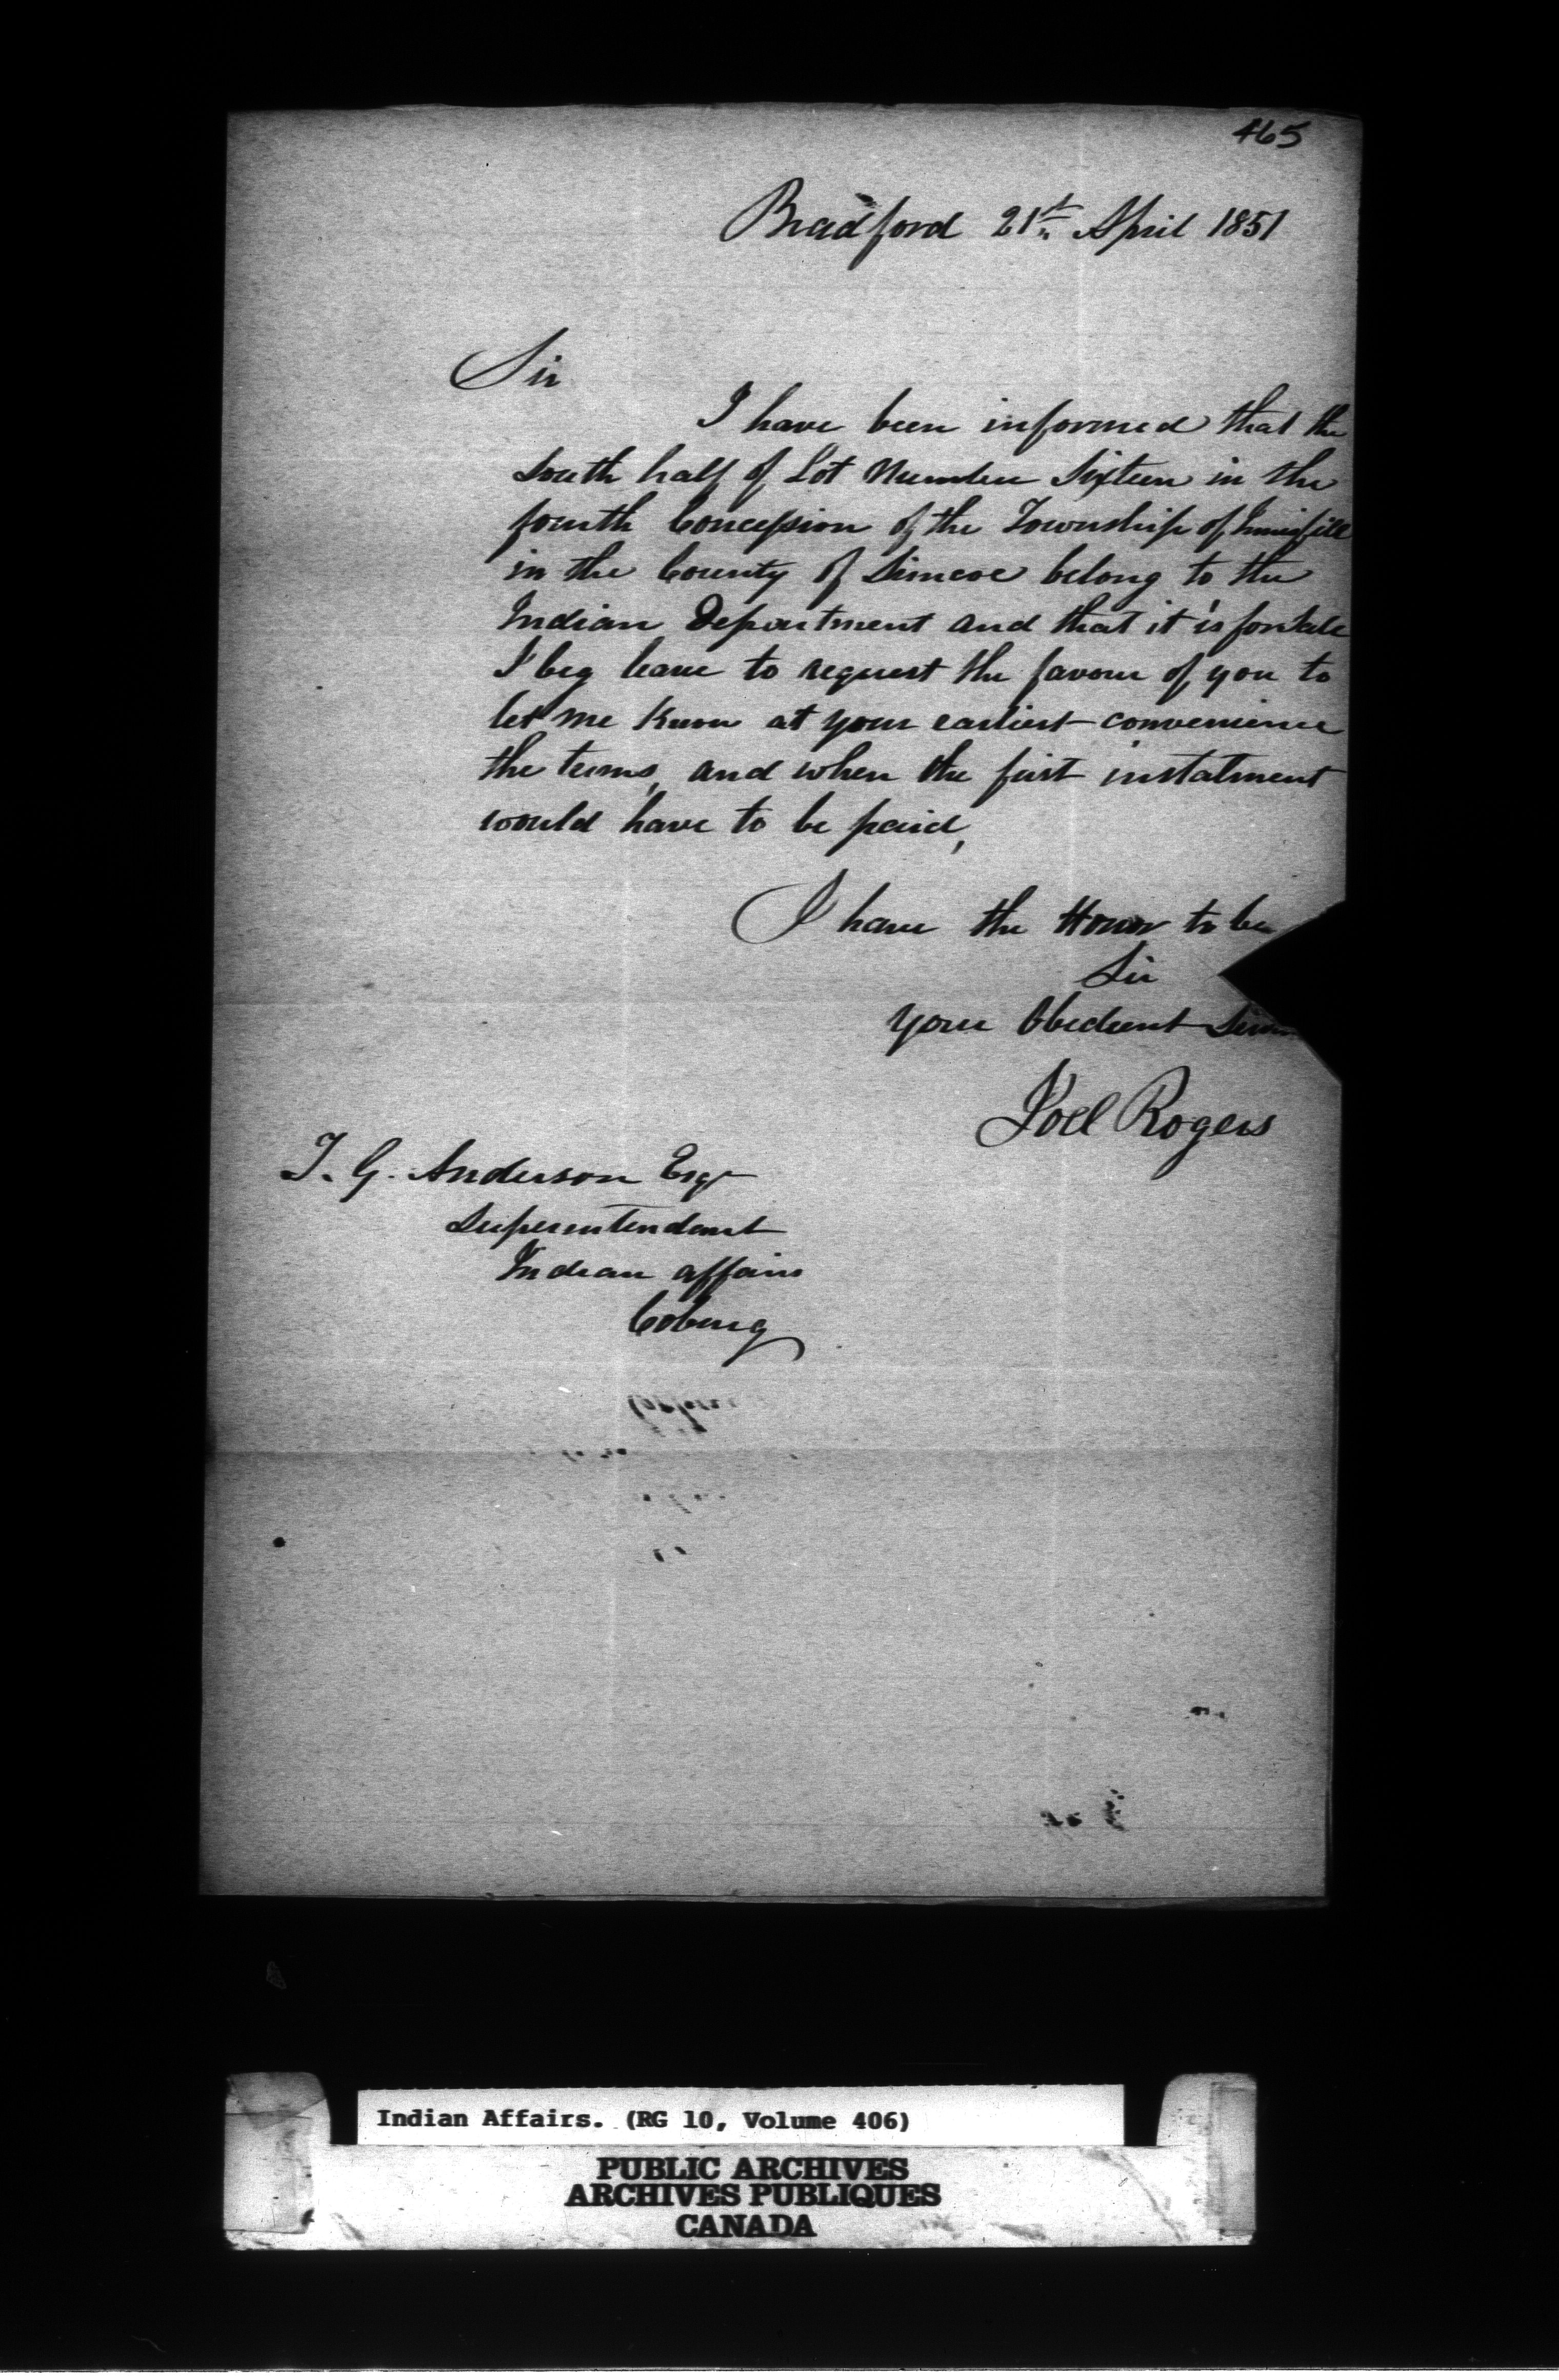 465
Bradford 21st April 1851
Sir
I have been informed that the
South half of Lot Number Sixteen in the
fourth Concession of the Township of Innisfill
in the County of Simcoe belong to the
Indian Department and that it is for Sale
I beg leave to request the favour of you to
let me know at your earliest convenience
the terms, and when the first instalment
would have to be paid,
I have the Honor to be
Sir
Your Obedient
Joel Rogers
T. G. Anderson Esqr
Superintendent
Indian affairs
Coburg
Indian Affairs. (RG 10, Volume 406)
PUBLIC ARCHIVES
ARCHIVES PUBLIQUES
CANADA